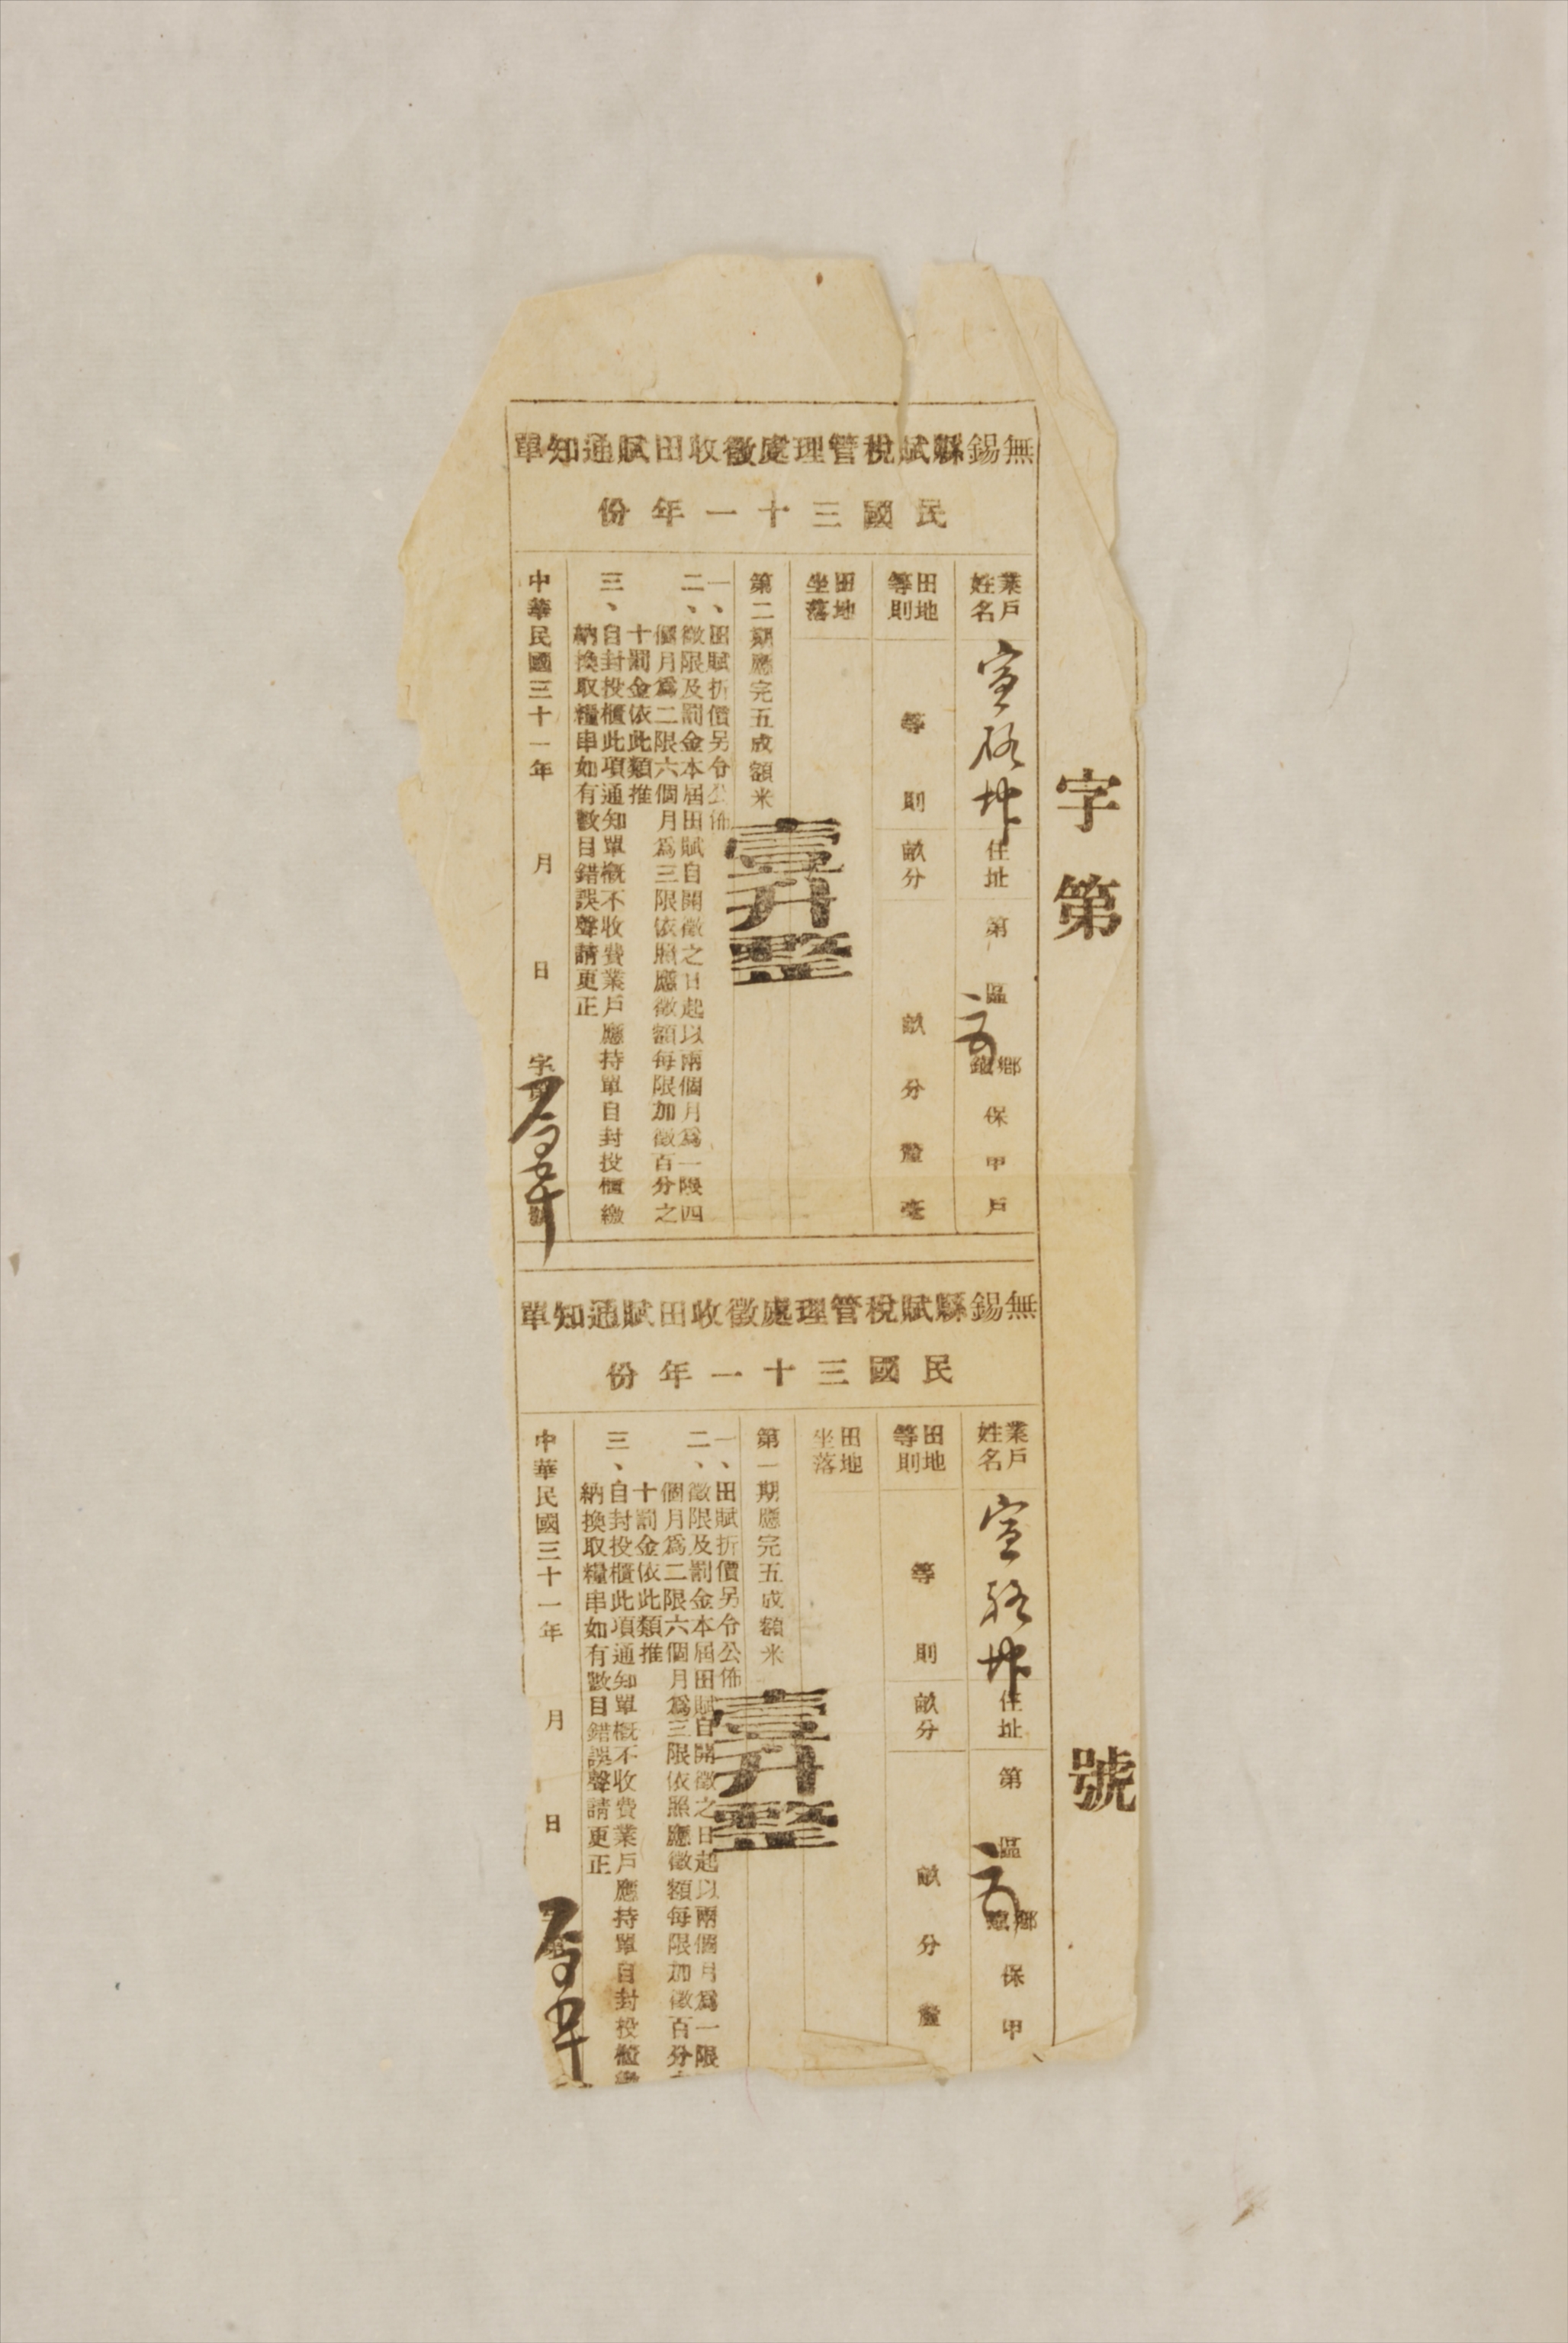 字第
號
無錫縣賦稅管理處徵收田賦通知單
民國三十一年份
業戶姓名
宣
住址
第
區
鄉鎮
保
甲
戶
田地等則
等
則
畝分
畝
分
釐
毫
田地坐落
第二期應完五成額米
壹升整
一、田賦折價另令公佈
二、徵限及罰金本屆田賦自開徵之日起以兩個月為一限四
個月為二限六個月為三限依照應徵額每限加徵百分之
十罰金依此類推
三、自封投櫃此項通知單概不收費業戶應持單自封投櫃繳
納換取糧串如有數目錯誤聲請更正
中華民國三十一年
月
日
字
無錫縣賦稅管理處徵收田賦通知單
民國三十一年份
業戶姓名
宣
住址
第
區
鄉鎮
保
甲
田地等則
等
則
畝分
畝
分
釐
田地坐落
第一期應完五成額米
壹升整
一、田賦折價另令公佈
二、徵限及罰金本屆田賦自開徵之日起以兩個月為一限
個月為二限六個月為三限依照應徵額每限加徵百分
十罰金依此類推
三、自封投櫃此項通知單概不收費業戶應持單自封投櫃繳
納換取糧串如有數目錯誤聲請更正
中華民國三十一年
月
日